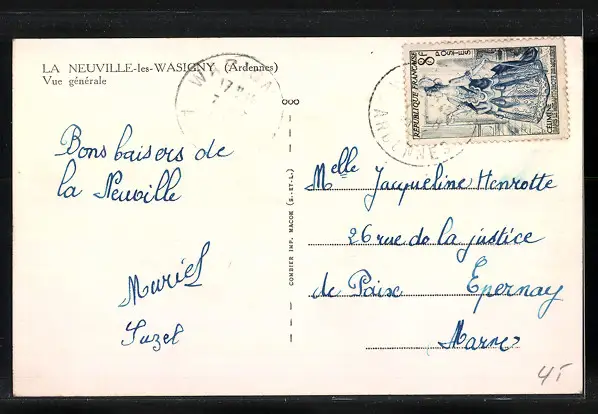 LA NEUVILLE-les-WASIGNY (Ardennes)
Vue générale
17 H
ARDENNES
RÉPUBLIQUE FRANÇAISE
8F
POSTES
CELIMÈNE
Bons baisers de
la Neuville
Muriel
Suzel
COMBIER IMP. MACON (S.-ET-L.)
Melle Jacqueline Henrotte
26 rue de la justice
de Paix Epernay
Marne
4F